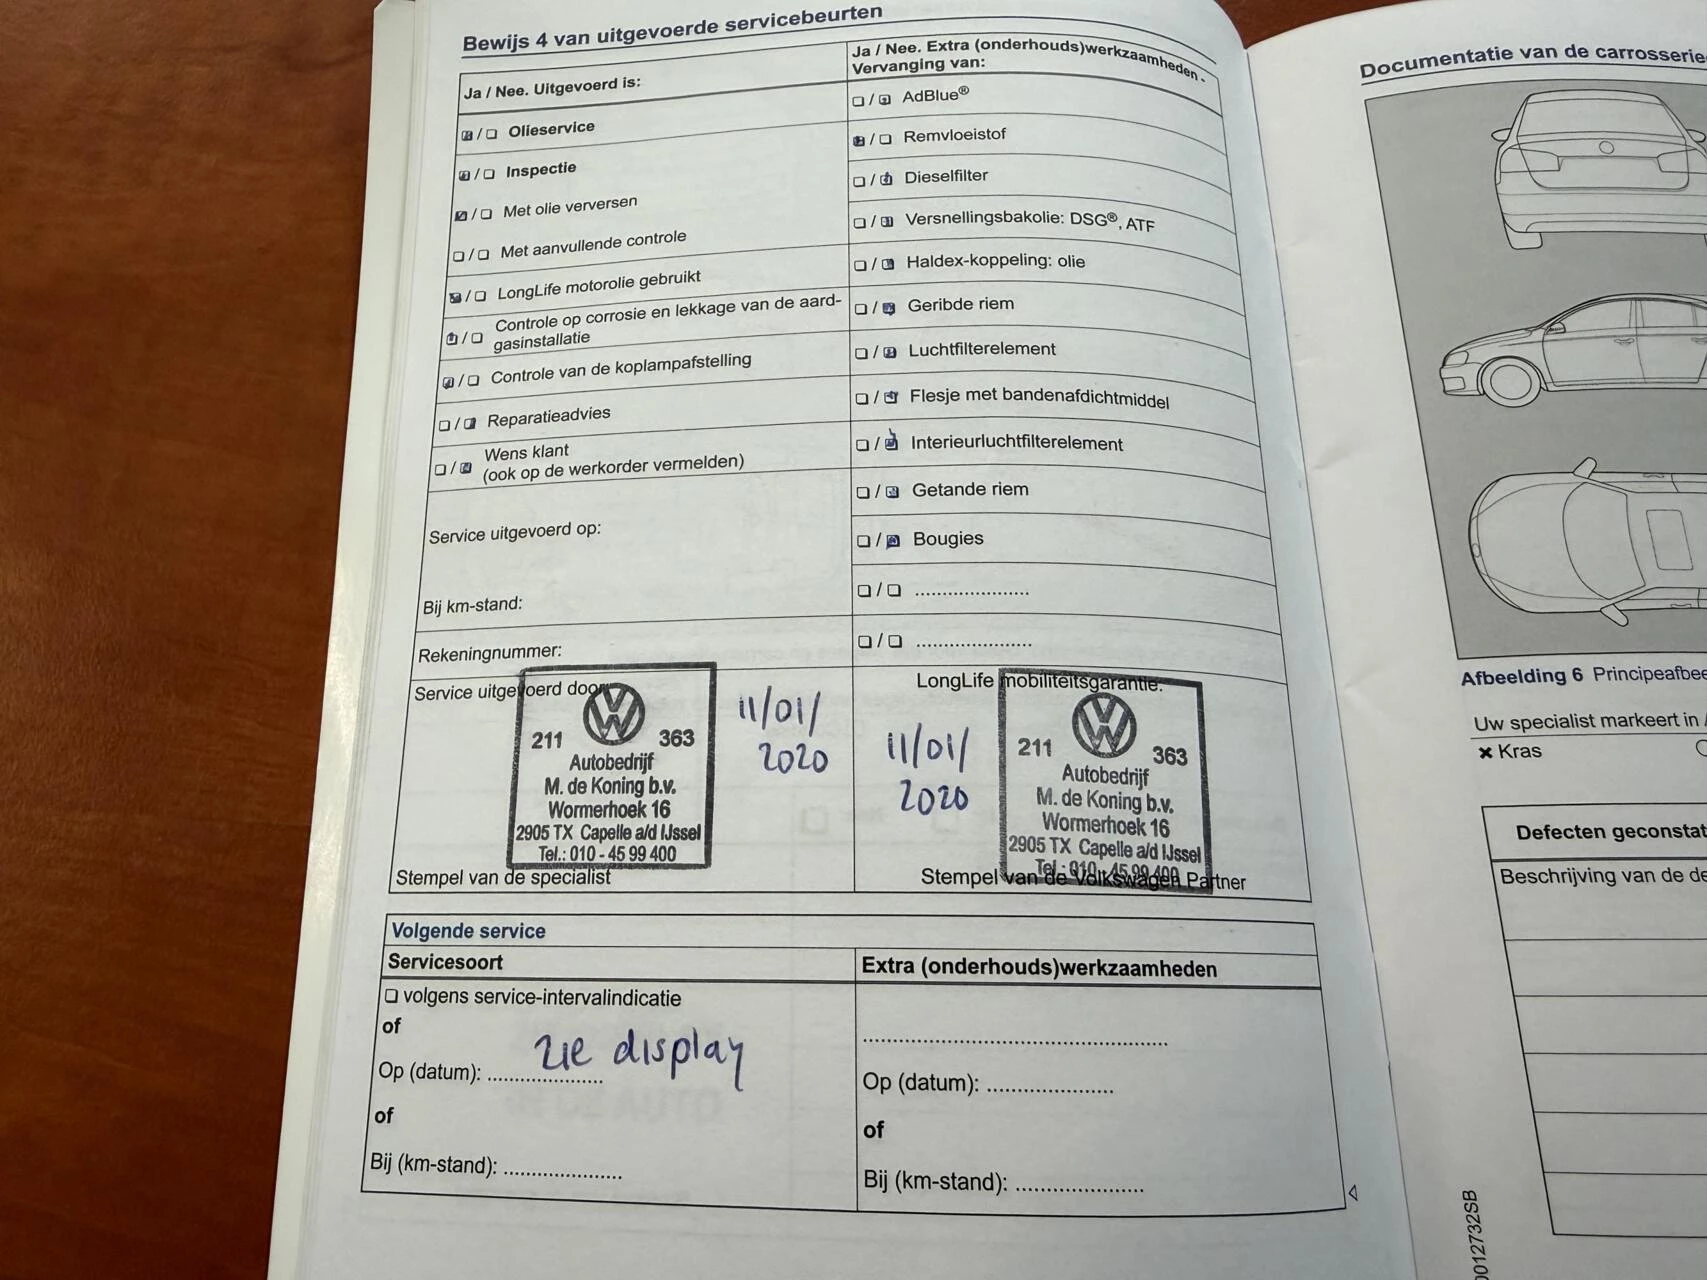 Bewijs 4 van uitgevoerde servicebeurten
Ja / Nee. Uitgevoerd is:
Olieservice
Inspectie
Met olie verversen
Met aanvullende controle
LongLife motorolie gebruikt
Controle op corrosie en lekkage van de aard-
gasinstallatie
Controle van de koplampafstelling
Reparatieadvies
Wens klant
(ook op de werkorder vermelden)
Service uitgevoerd op:
Bij km-stand:
Rekeningnummer:
Service uitgevoerd door
211 363
Autobedrijf
M. de Koning b.v.
Wormerhoek 16
2905 TX Capelle a/d IJssel
Tel.: 010 - 45 99 400
11/01/
2020
Stempel van de specialist
Ja / Nee. Extra (onderhouds)werkzaamheden -
Vervanging van:
AdBlue®
Remvloeistof
Dieselfilter
Versnellingsbakolie: DSG®, ATF
Haldex-koppeling: olie
Geribde riem
Luchtfilterelement
Flesje met bandenafdichtmiddel
Interieurluchtfilterelement
Getande riem
Bougies
LongLife mobiliteitsgarantie:
11/01/
2020
211 363
Autobedrijf
M. de Koning b.v.
Wormerhoek 16
2905 TX Capelle a/d IJssel
Tel.: 010 - 45 99 400
Stempel van de Volkswagen Partner
Volgende service
Servicesoort
volgens service-intervalindicatie
of
zie display
Op (datum): ....................
of
Bij (km-stand): ....................
Extra (onderhouds)werkzaamheden
Op (datum): ....................
of
Bij (km-stand): ....................
Documentatie van de carrosserie
Afbeelding 6 Principeafbee
Uw specialist markeert in
× Kras
Defecten geconstat
Beschrijving van de de
0012732SB